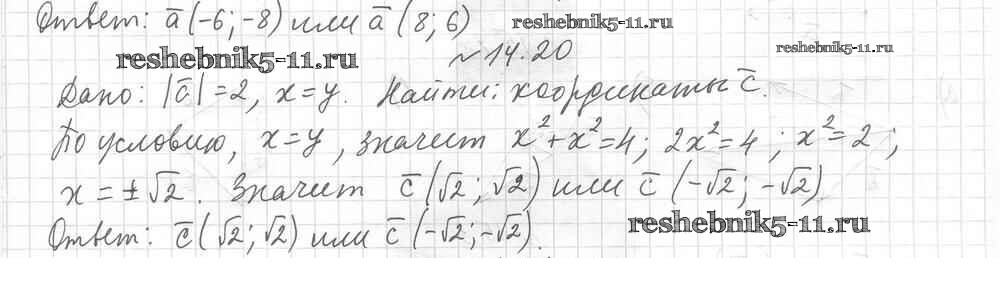 Ответ: a̅ (-6; -8) или a̅ (8; 6)
reshebnik5-11.ru
reshebnik5-11.ru
№ 14.20
reshebnik5-11.ru
Дано: |c̅| = 2, x = y. Найти: координаты c̅.
По условию, x = y, значит x² + x² = 4; 2x² = 4; x² = 2;
x = ± √2. Значит c̅ (√2; √2) или c̅ (-√2; -√2)
reshebnik5-11.ru
Ответ: c̅ (√2; √2) или c̅ (-√2; -√2).